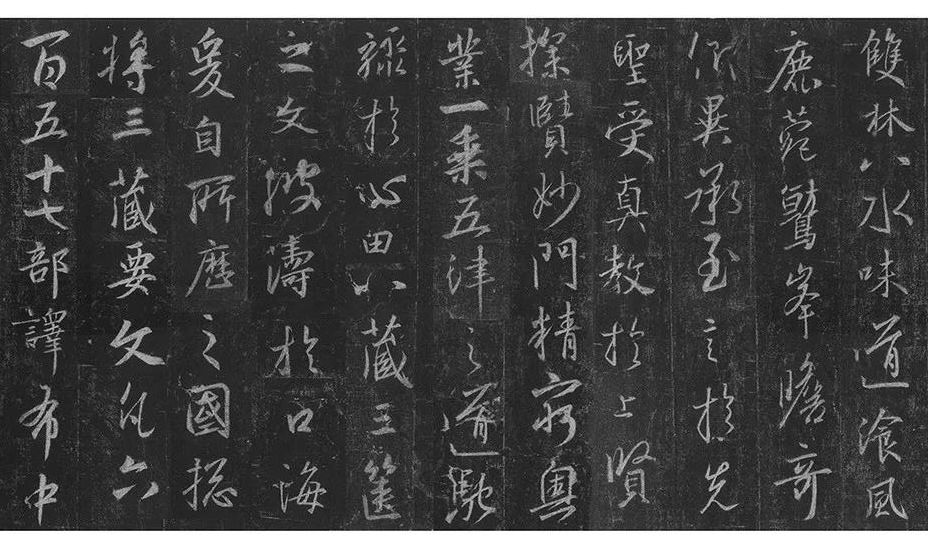 雙林八水味道湌風
鹿菀鷲峯瞻奇
仰異承至言於先
聖受真教於上賢
探賾妙門精窮奧
業一乘五律之道馳
驟於心田八藏三篋
之文波濤於口海
爰自所歷之國揔
將三藏要文凡六
百五十七部譯布中